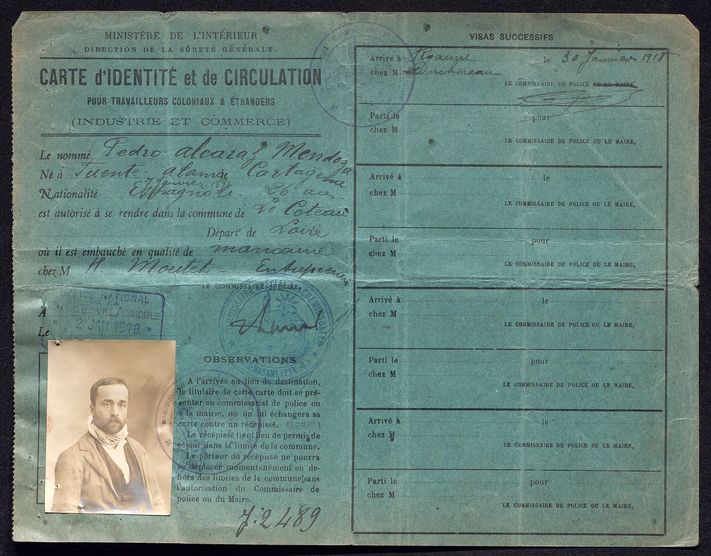 MINISTÈRE DE L'INTÉRIEUR
DIRECTION DE LA SÛRETÉ GÉNÉRALE.
CARTE d'IDENTITÉ et de CIRCULATION
POUR TRAVAILLEURS COLONIAUX & ÉTRANGERS
(INDUSTRIE ET COMMERCE)
Le nommé Pedro alcaraz Mendoza
Né à Fuente alamo Cartagena
Nationalité Espagnole 26 ans
est autorisé à se rendre dans la commune de Le Coteau
Départ de Loire
où il est embauché en qualité de manœuvre
chez M H Moutet - Entrepreneur
LE COMMISSAIRE SPÉCIAL
NATIONAL
AGRICOLE
2 JAN 1918
A
Le
OBSERVATIONS
A l'arrivée au lieu de destination,
le titulaire de cette carte doit se pré-
senter au commissariat de police ou
à la mairie, où on lui échangera sa
carte contre un récépissé.
Le récépissé tient lieu de permis de
séjour dans la limite de la commune.
Le porteur du récépissé ne pourra
se déplacer momentanément en de-
hors des limites de la commune sans
l'autorisation du Commissaire de
police ou du Maire.
J: 2489
VISAS SUCCESSIFS
Arrivé à Roanne le 30 Janvier 1918
chez M
LE COMMISSAIRE DE POLICE OU LE MAIRE,
Parti le pour
chez M
LE COMMISSAIRE DE POLICE OU LE MAIRE,
Arrivé à le
chez M
LE COMMISSAIRE DE POLICE OU LE MAIRE,
Parti le pour
chez M
LE COMMISSAIRE DE POLICE OU LE MAIRE,
Arrivé à le
chez M
LE COMMISSAIRE DE POLICE OU LE MAIRE,
Parti le pour
chez M
LE COMMISSAIRE DE POLICE OU LE MAIRE,
Arrivé à le
chez M
LE COMMISSAIRE DE POLICE OU LE MAIRE,
Parti le pour
chez M
LE COMMISSAIRE DE POLICE OU LE MAIRE,